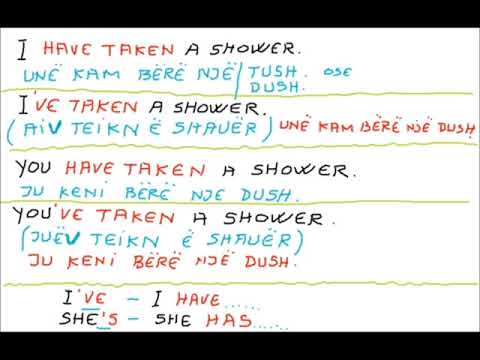 I HAVE TAKEN A SHOWER.
UNË KAM BËRË NJË/TUSH. OSE
DUSH.
I'VE TAKEN A SHOWER.
(AIV TEIKN Ë SHAUËR) UNË KAM BËRË NJË DUSH
YOU HAVE TAKEN A SHOWER.
JU KENI BËRË NJE DUSH.
YOU'VE TAKEN A SHOWER.
(JUËV TEIKN Ë SHAUËR)
JU KENI BËRË NJË DUSH.
I'VE – I HAVE......
SHE'S – SHE HAS......